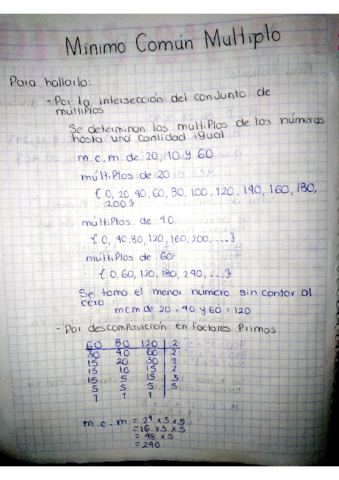 Minimo Común Multiplo
Para hallarlo:
- Por la intersección del conjunto de
múltiplos
Se determinan los multiplos de los números
hasta una cantidad igual
m.c.m de 20, 40 y 60
múltiplos de 20
{0, 20, 40, 60, 80, 100, 120, 140, 160, 180,
200}
múltiplos de 40
{0, 40, 80, 120, 160, 200, ...}
múltiplos de 60
{0, 60, 120, 180, 240, ...}
Se toma el menor número sin contar al
cero
mcm de 20, 40 y 60 = 120
- Por descomposición en factores Primos
60 80 120 2
30 40 60 2
15 20 30 2
15 10 15 2
15 5 15 3
5 5 5 5
1 1 1
m.c.m = 2⁴ x 3 x 5
= 16 x 3 x 5
= 48 x 5
= 240